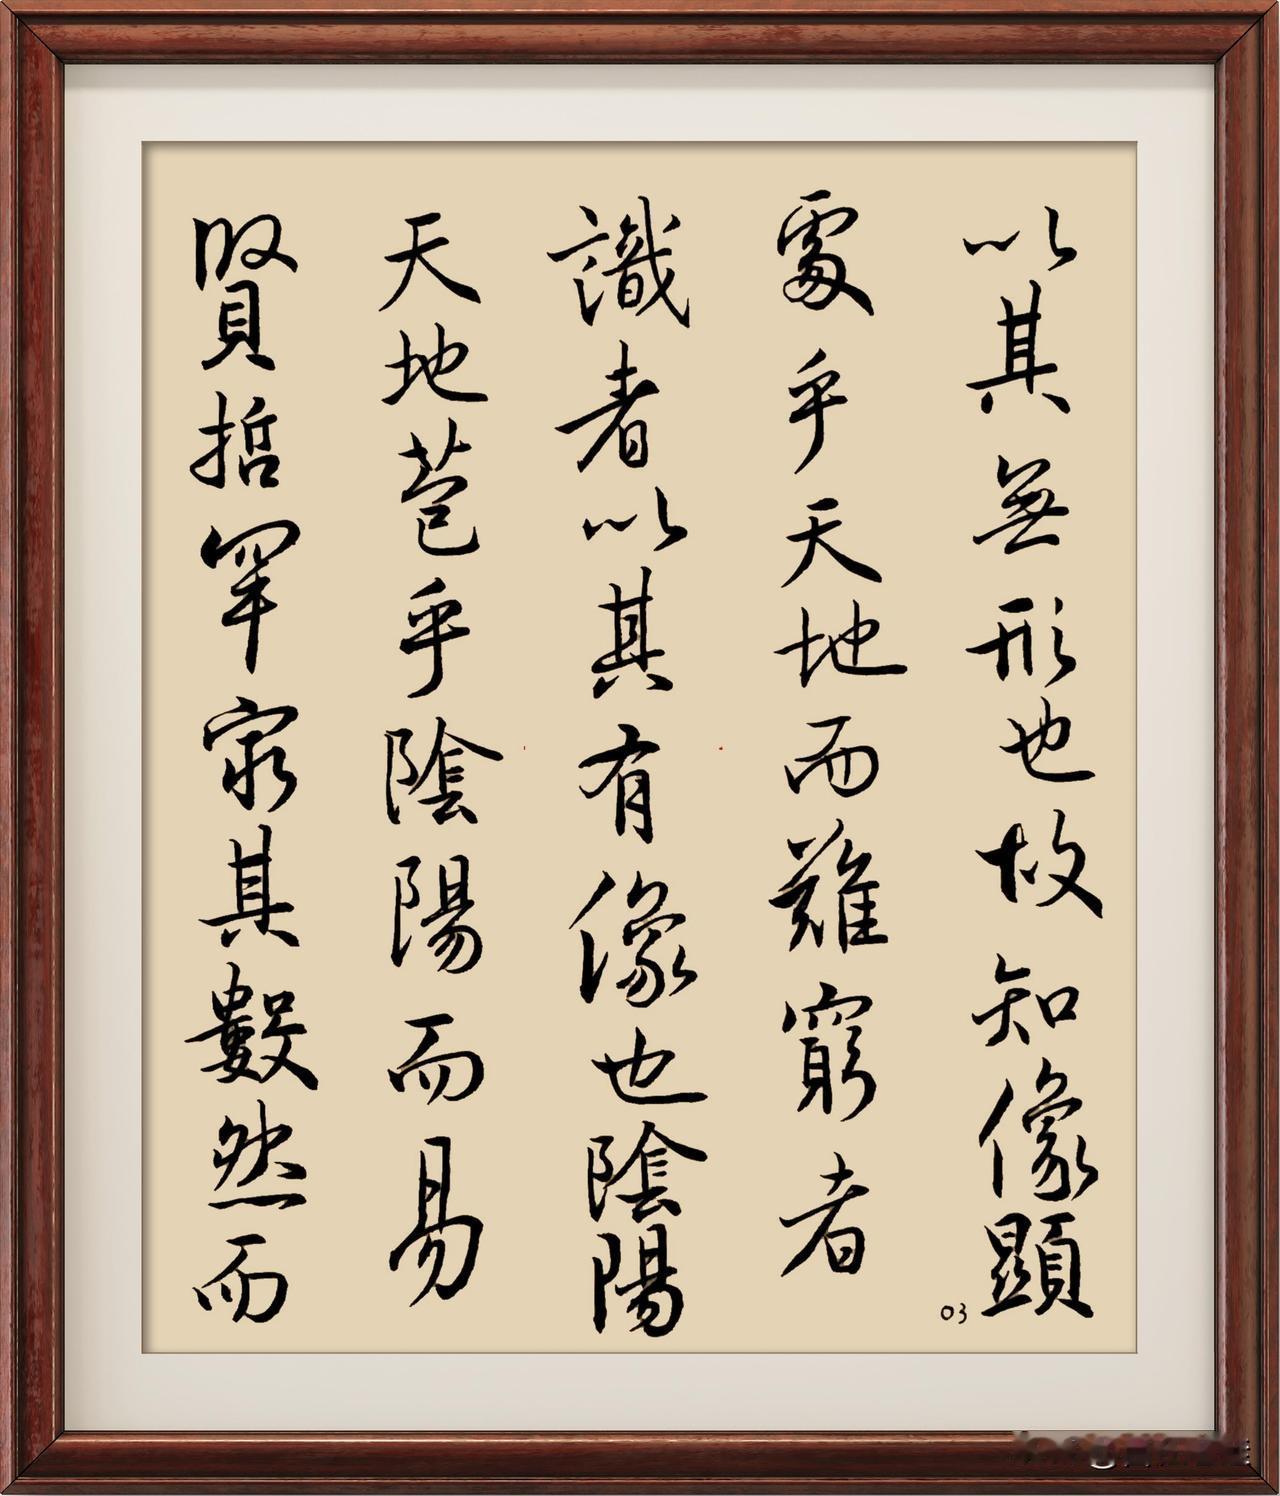 賢哲罕窮其數然而
天地苞乎陰陽而易
識者以其有像也陰陽
處乎天地而難窮者
以其無形也故知像顯
03